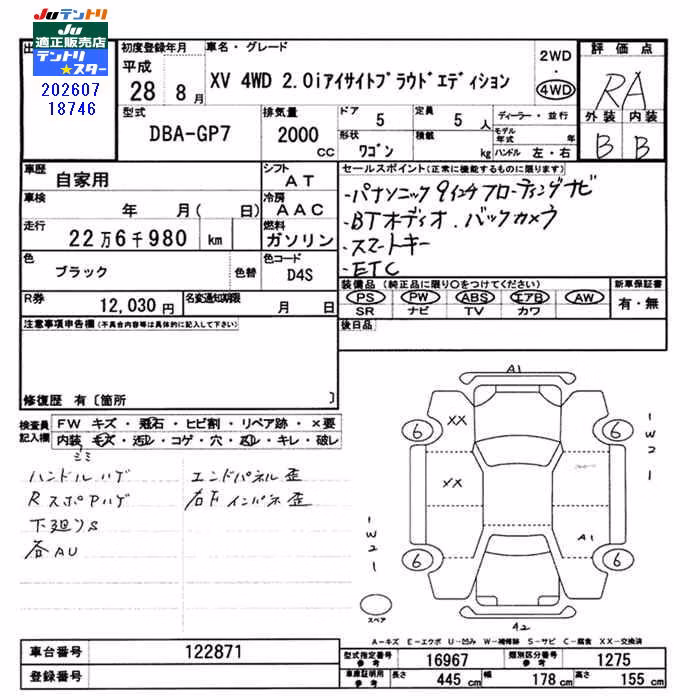 Juテントリ
Ju
適正販売店
テントリ
★スター
202607
18746
初度登録年月
平成
28 年 8 月
車名・グレード
XV 4WD 2.0iアイサイトプラウドエディション
2WD
・
4WD
評価点
RA
外装 内装
B B
型式
DBA-GP7
排気量
2000 cc
ドア 5
定員 5 人
形状 ワゴン
積載 kg
ディーラー・並行
モデル年式 年
ハンドル 左・右
車歴
自家用
シフト
AT
車検
年 月( 日)
冷房
AAC
走行
22万6千980 km
燃料
ガソリン
色
ブラック
色替
色コード
D4S
R券
12,030 円
名変通知期限
月 日
セールスポイント(正常に機能するものに限ります)
・パナソニック9インチフローティングナビ
・BTオーディオ.バックカメラ
・スマートキー
・ETC
装備品 (純正品に限り○をつけてください)
PS PW ABS エアB AW
SR ナビ TV カワ
新車保証書
有・無
後日品
注意事項申告欄(不具合内容等は具体的に記入して下さい)
修復歴 有〔箇所 〕
検査員
記入欄
FW キズ・飛石・ヒビ割・リペア跡・×要
内装 キズ・汚れ・コゲ・穴・スレ・キレ・破レ
ハンドルハゲ
RスポAハゲ
下廻りS
各AU
エンドパネル歪
右Fインパネ歪
A1
XX
6
6
1W21
XX
A1
1W21
6
6
スペア
A2
A-キズ E-エクボ U-凹み W-補修跡 S-サビ C-腐食 XX-交換済
車台番号
122871
登録番号
型式指定番号
参考
16967
類別区分番号
参考
1275
車庫証明用
参考
長さ 445 cm
幅 178 cm
高さ 155 cm